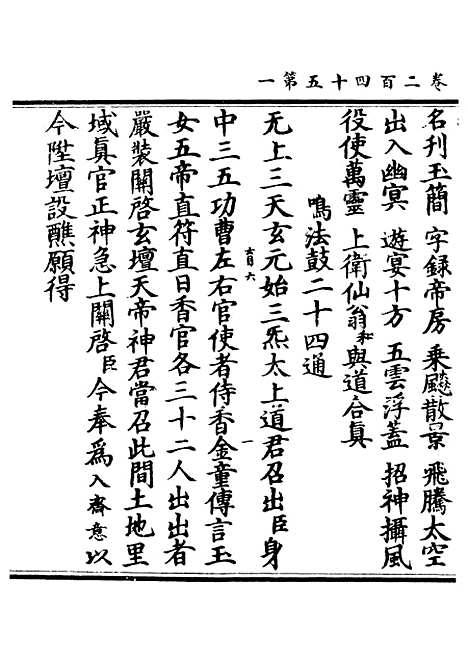 卷二百四十五第一
名刊玉簡　字録帝房　乘飈散景　飛騰太空
出入幽冥　遊宴十方　五雲浮蓋　招神攝風
役使萬靈　上衛仙翁和與道合真
鳴法鼓二十四通
无上三天玄元始三炁太上道君召出臣身
中三五功曹左右官使者侍香金童傳言玉
女五帝直符直日香官各三十二人出出者
嚴裝關啓玄壇天帝神君當召此間土地里
域真官正神急上關啓臣今奉爲入齋意以
今陞壇設醮願得